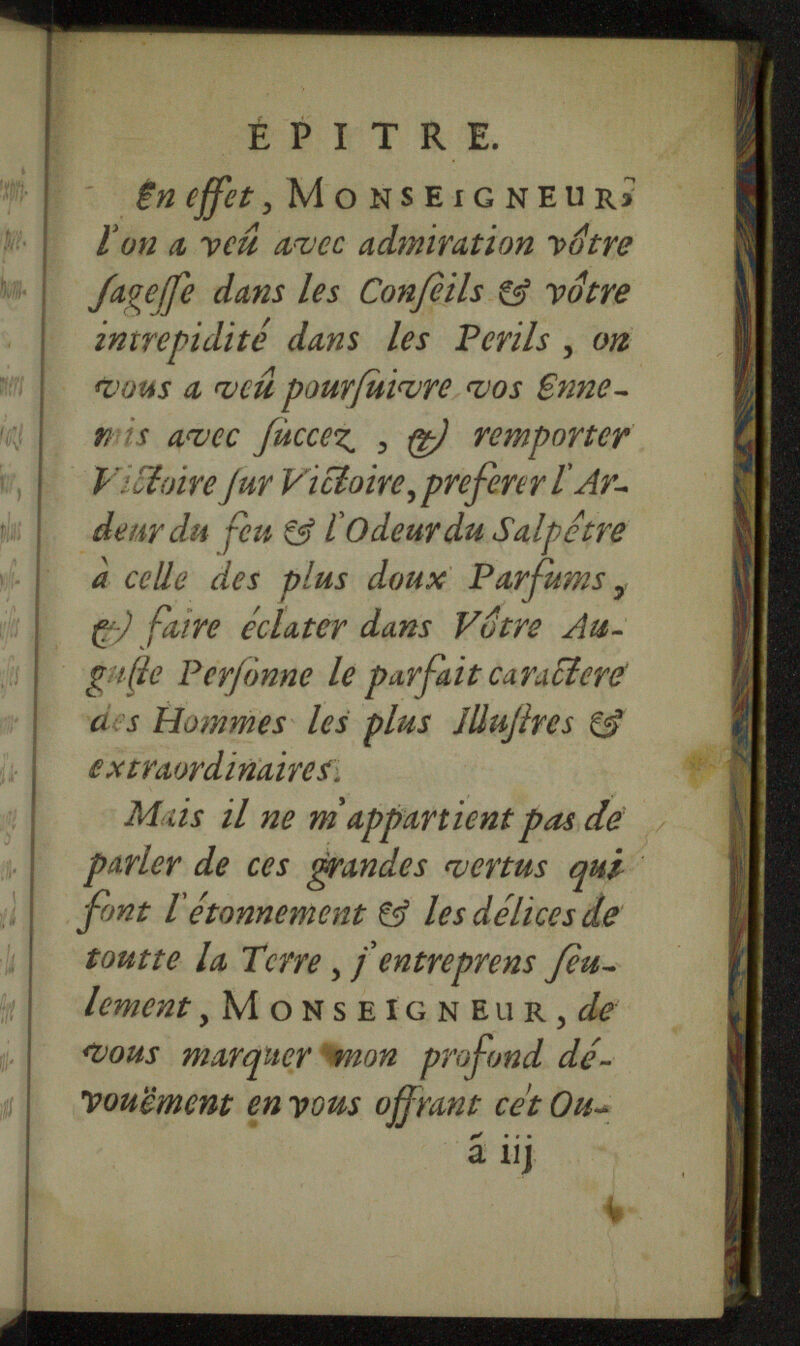 ÉPITRE.
En effet, MONSEIGNEUR,
l'on a veû avec admiration vôtre
ſageſſe dans les Conſeils & vôtre
intrepidité dans les Perils, on
vous a veû pourſuivre vos Enne-
mis avec ſuccez, & remporter
Victoire ſur Victoire, preferer l'Ar-
deur du feu & l'Odeur du Salpêtre
à celle des plus doux Parfums,
& faire éclater dans Vôtre Au-
guſte Perſonne le parfait caractere
des Hommes les plus Illuſtres &
extraordinaires.
Mais il ne m'appartient pas de
parler de ces grandes vertus qui
font l'étonnement & les délices de
toutte la Terre, j'entreprens ſeu-
lement, MONSEIGNEUR, de
vous marquer mon profond dé-
vouëment en vous offrant cét Ou-
ã iij